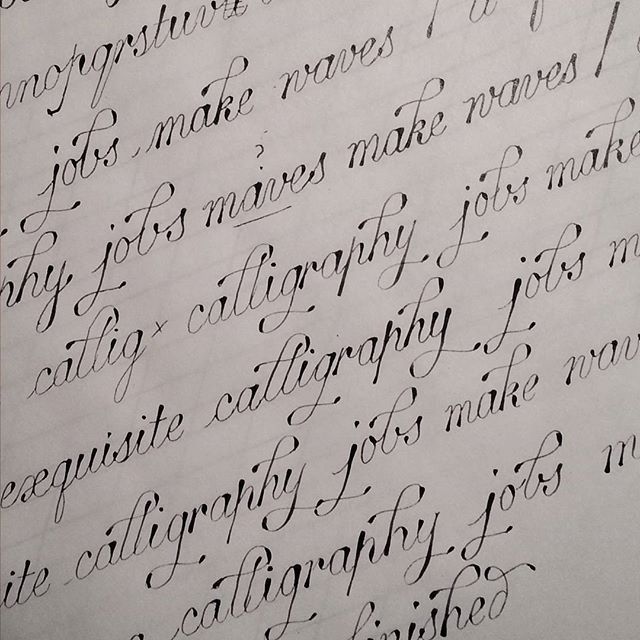 mnopqrstuv
jobs make waves /
?
phy jobs maves make waves /
callig× calligraphy jobs make
exquisite calligraphy jobs m
ite calligraphy jobs make wav
calligraphy jobs m
finished